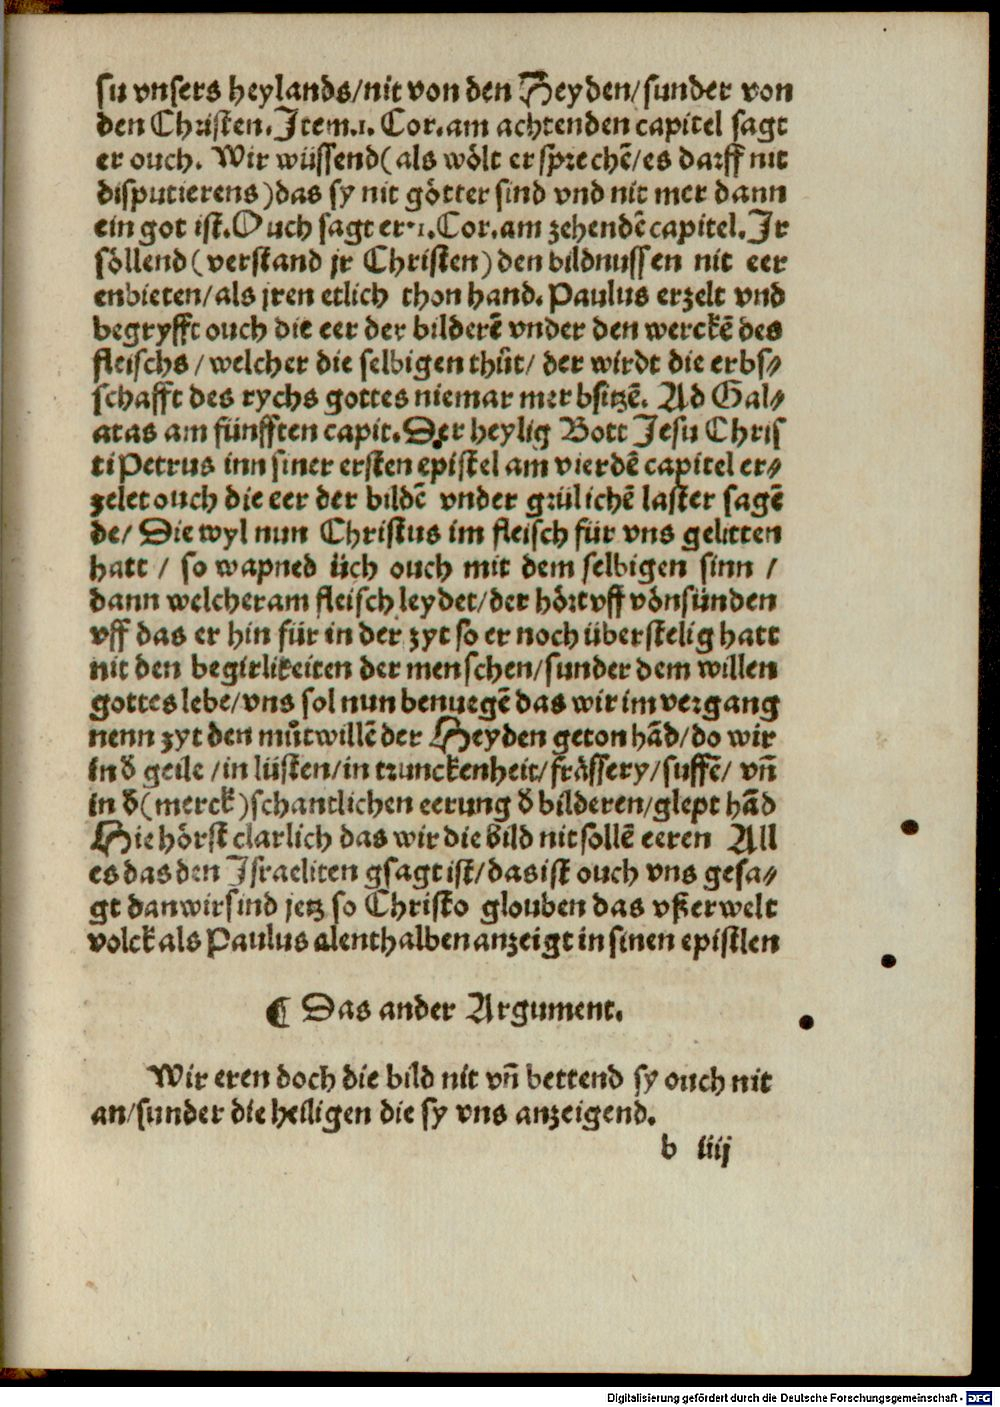 su vnsers heylands/nit von den Heyden/sunder von
den Christen. Item. 1. Cor. am achtenden capitel sagt
er ouch. Wir wüssend (als wölt er sprechē/es darff nit
disputierens) das sy nit götter sind vnd nit mer dann
ein got ist. Ouch sagt er. 1. Cor. am zehendē capitel. Jr
söllend (verstand jr Christen) den bildnussen nit eer
enbieten/als jren etlich thon hand. Paulus erzelt vnd
begryfft ouch die eer der bilderē vnder den werckē des
fleischs/welcher die selbigen thůt/ der wirdt die erbs⸗
schafft des rychs gottes niemar mer bsitzē. Ad Gal⸗
atas am fünfften capit. Der heylig Bott Jesu Chris
ti Petrus inn siner ersten epistel am vierdē capitel er⸗
zelet ouch die eer der bildē vnder grülichē laster sagē
de/ Die wyl nun Christus im fleisch für vns gelitten
hatt / so wapned üch ouch mit dem selbigen sinn /
dann welcher am fleisch leydet/der hört vff vōn sünden
vff das er hin für in der zyt so er noch überstelig hatt
nit den begirlikeiten der menschen/sunder dem willen
gottes lebe/vns sol nun benuegē das wir im vergang
nenn zyt den můtwillē der Heyden geton hād/do wir
in d̄ geile /in lüsten/in trunckenheit/frässery/suffē/ vn̄
in d̄ (merck) schantlichen eerung d̄ bilderen/glept hād
Hie hörst clarlich das wir die bild nit sollē eeren All
es das den Israeliten gsagt ist/das ist ouch vns gesa⸗
gt dan wir sind jetz so Christo glouben das vßerwelt
volck als Paulus alenthalben anzeigt in sinen epistlen
¶ Das ander Argument.
Wir eren doch die bild nit vn̄ bettend sy ouch nit
an/sunder die heiligen die sy vns anzeigend.
b iiij
Digitalisierung gefördert durch die Deutsche Forschungsgemeinschaft - DFG